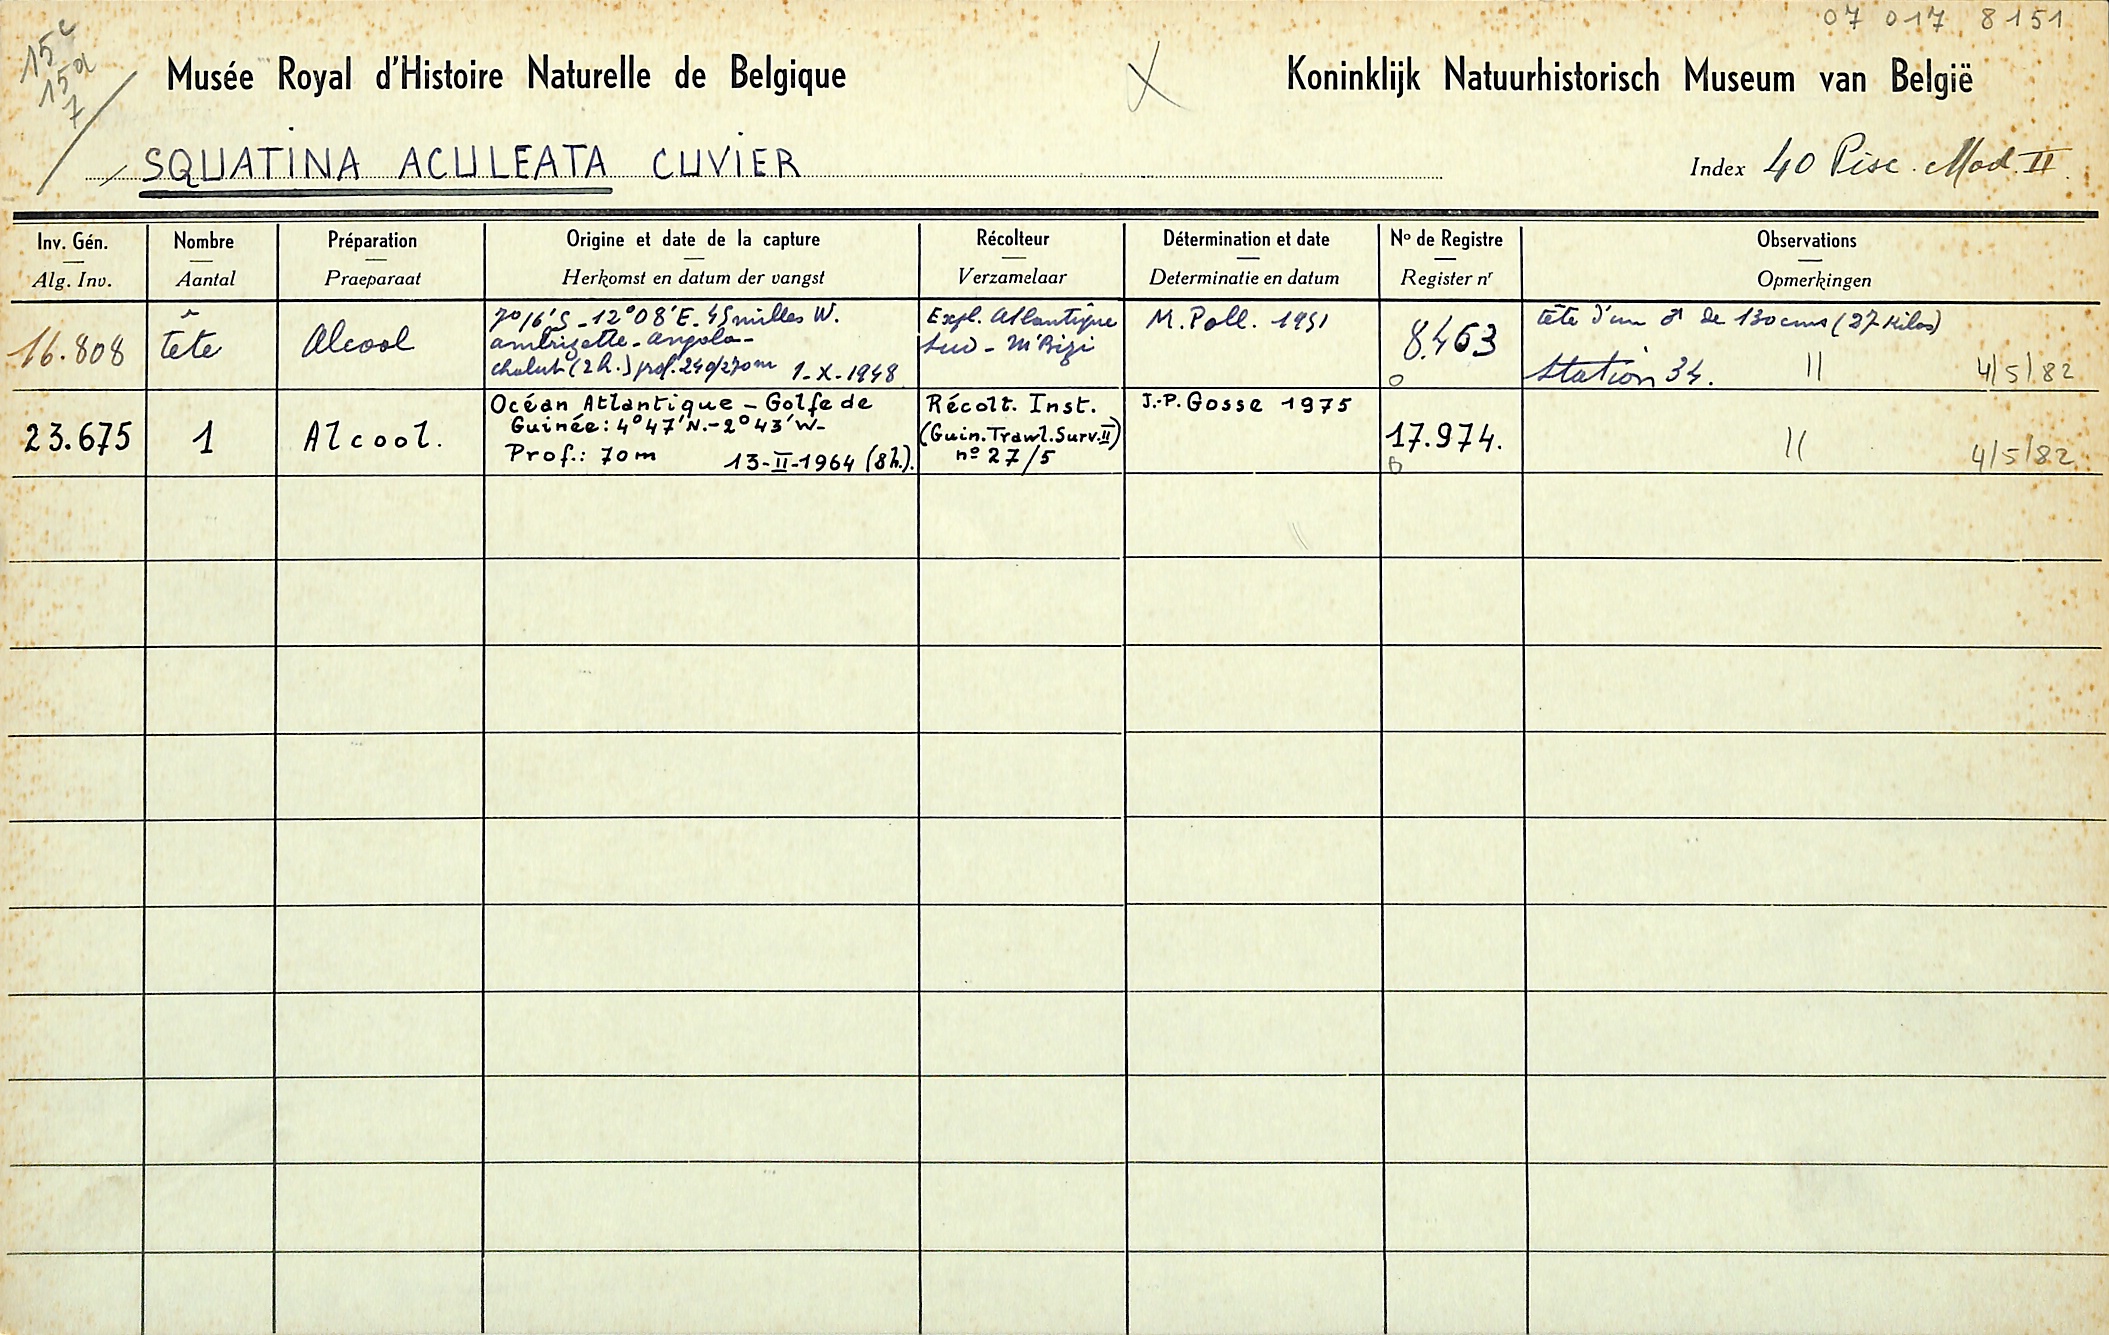 07 017 8151
15c
15d
7
Musée Royal d'Histoire Naturelle de Belgique
Koninklijk Natuurhistorisch Museum van België
SQUATINA ACULEATA CUVIER
Index 40 Pisc. Mod. II.
Inv. Gén.
Alg. Inv.
Nombre
Aantal
Préparation
Praeparaat
Origine et date de la capture
Herkomst en datum der vangst
Récolteur
Verzamelaar
Détermination et date
Determinatie en datum
No de Registre
Register nr
Observations
Opmerkingen
16.808
tête
Alcool
7°16'S - 12°08'E. 45 milles W.
ambrizette - angola -
chalut (2h.) prof. 240/270m 1-X-1948
Expl. Atlantique
Sud - M'Bizi
M. Poll. 1951
8.463
o
tête d'un ♂ de 130cms (27 Kilos)
Station 34. || 4/5/82
23.675
1
Alcool.
Océan Atlantique - Golfe de
Guinée: 4°47'N.-2°43'W-
Prof.: 70m 13-II-1964 (8h.).
Récolt. Inst.
(Guin.Trawl.Surv.II)
nº 27/5
J.-P. Gosse 1975
17.974.
|| 4/5/82